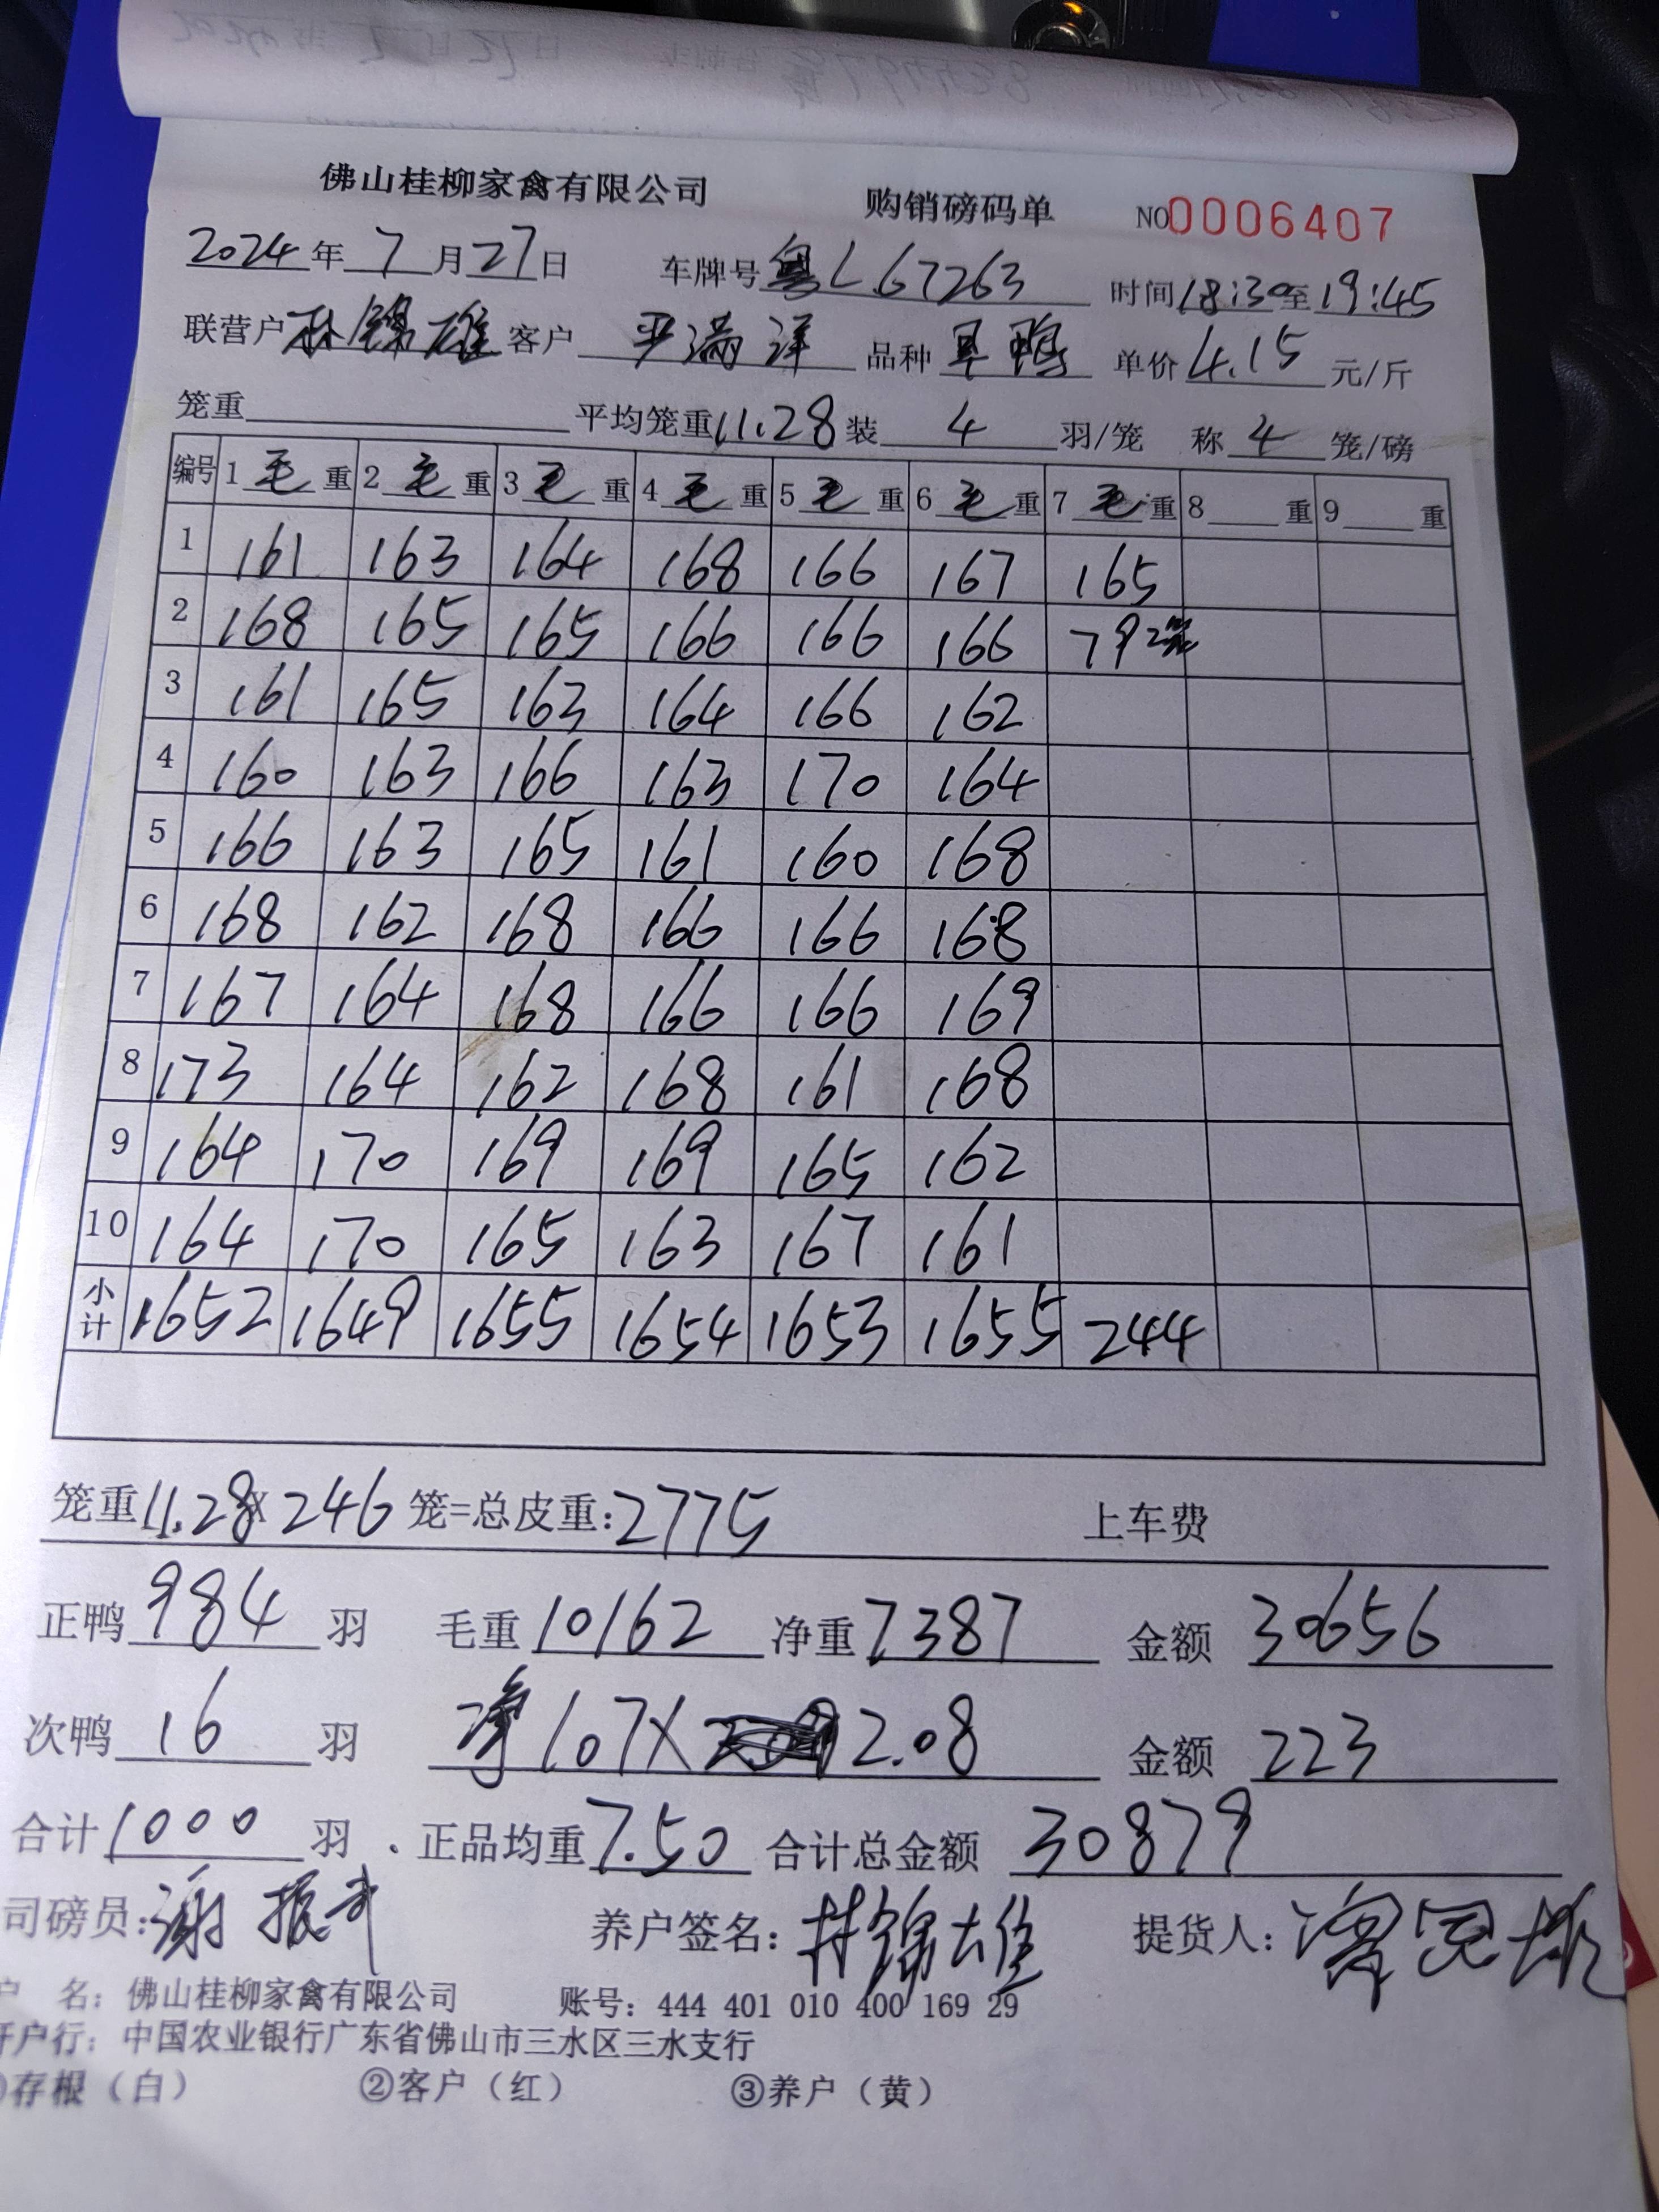 佛山桂柳家禽有限公司 购销磅码单 NO0006407
2024年7月27日 车牌号粤L67263 时间18:30至19:45
联营户林锦雄 客户 严满洋 品种 旱鸭 单价4.15元/斤
笼重 平均笼重11.28装4羽/笼 称4笼/磅
编号 1毛重 2毛重 3毛重 4毛重 5毛重 6毛重 7毛重 8重 9重
1 161 163 164 168 166 167 165
2 168 165 165 166 166 166 79 2笼
3 161 165 163 164 166 162
4 160 163 166 163 170 164
5 166 163 165 161 160 168
6 168 162 168 166 166 168
7 167 164 168 166 166 169
8 173 164 162 168 161 168
9 164 170 169 169 165 162
10 164 170 165 163 167 161
小计 1652 1649 1655 1654 1653 1655 244
笼重11.28X246笼=总皮重:2775 上车费
正鸭984羽 毛重10162 净重7387 金额30656
次鸭16羽 净107X2.08 金额223
合计1000羽. 正品均重7.50 合计总金额30879
司磅员:谢振 养户签名:林锦雄 提货人:
户 名:佛山桂柳家禽有限公司 账号:444 401 010 400 169 29
开户行:中国农业银行广东省佛山市三水区三水支行
存根(白) ②客户(红) ③养户(黄)